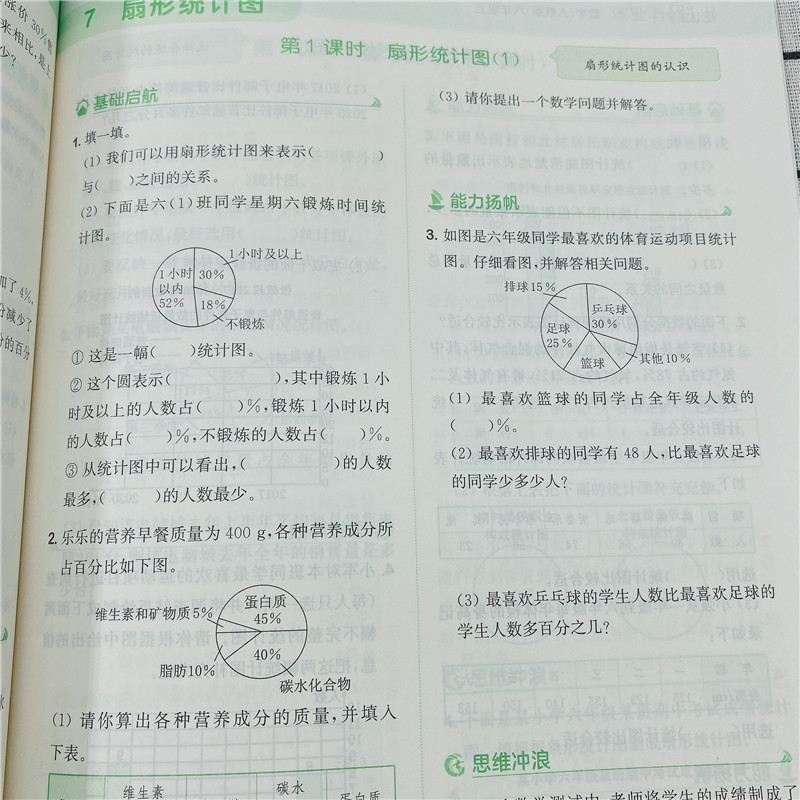 涨价30%售
来相比,是上
少?
加了4%,
分减少了
分的百分
7 扇形统计图
第1课时 扇形统计图(1)
扇形统计图的认识
基础启航
1. 填一填。
(1) 我们可以用扇形统计图来表示( )
与( )之间的关系。
(2) 下面是六(1)班同学星期六锻炼时间统
计图。
1小时及以上
1小时
以内
52%
30%
18%
不锻炼
① 这是一幅( )统计图。
② 这个圆表示( ),其中锻炼1小
时及以上的人数占( )%,锻炼1小时以内
的人数占( )%,不锻炼的人数占( )%。
③ 从统计图中可以看出,( )的人数
最多,( )的人数最少。
2. 乐乐的营养早餐质量为400 g,各种营养成分所
占百分比如下图。
维生素和矿物质5%
蛋白质
45%
40%
脂肪10%
碳水化合物
(1) 请你算出各种营养成分的质量,并填入
下表。
维生素
碳水
蛋白质
(3) 请你提出一个数学问题并解答。
能力扬帆
3. 如图是六年级同学最喜欢的体育运动项目统计
图。仔细看图,并解答相关问题。
排球15%
乒乓球
30%
足球
25%
篮球
其他10%
(1) 最喜欢篮球的同学占全年级人数的
( )%。
(2) 最喜欢排球的同学有48人,比最喜欢足球
的同学少多少人?
(3) 最喜欢乒乓球的学生人数比最喜欢足球的
学生人数多百分之几?
思维冲浪
数学测试中,老师将学生的成绩制成了